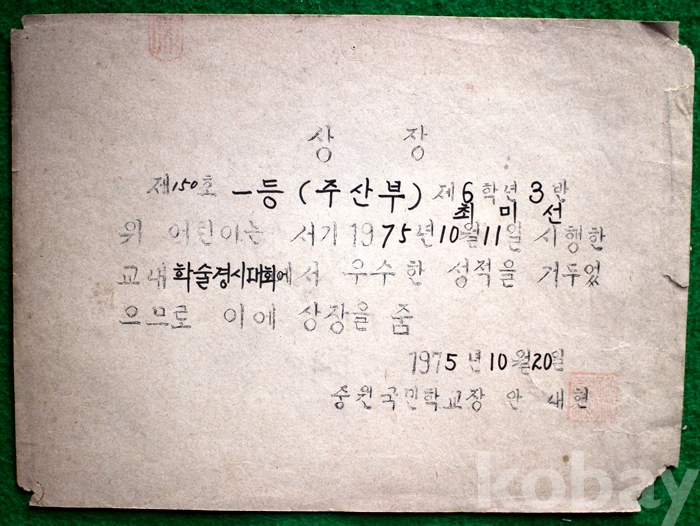 상 장
제150호 一등 (주산부) 제6학년 3반
최 미 선
위 어린이는 서기 1975년 10월 11일 시행한
교내 학술경시대회에서 우수한 성적을 거두었
으므로 이에 상장을 줌
1975년 10월 20일
중원국민학교장 안 재현
kobay